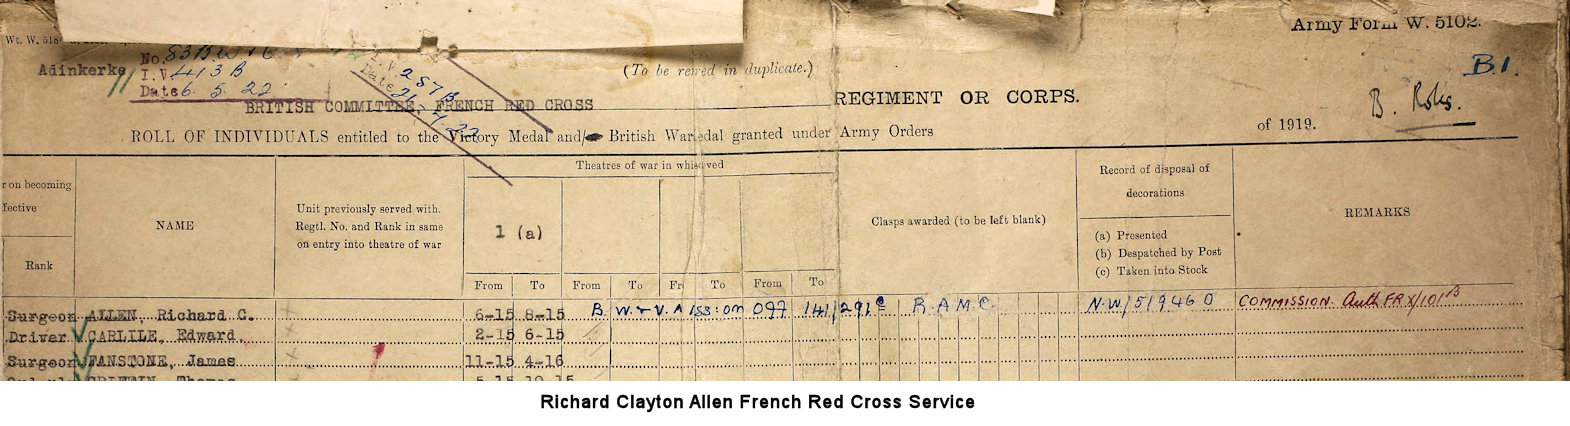 Army Form W. 5102.
Wt. W. 518
No. 83 B
Adinkerke
I.V. 413 B
Date 6. 5. 22
I.V. 287 B
Date 21. 4. 22
(To be rered in duplicate.)
B1.
B. Rolls.
BRITISH COMMITTEE, FRENCH RED CROSS REGIMENT OR CORPS.
ROLL OF INDIVIDUALS entitled to the Victory Medal and/ British War edal granted under Army Orders of 1919.
r on becoming
fective
Rank
NAME
Unit previously served with.
Regtl. No. and Rank in same
on entry into theatre of war
Theatres of war in whi ved
1 (a)
From To From To Fr To From To
Clasps awarded (to be left blank)
Record of disposal of
decorations
(a) Presented
(b) Despatched by Post
(c) Taken into Stock
REMARKS
Surgeon ALLEN, Richard C. 6-15 8-15 B. W. & V. iss: on 097 141/291 R.A.M.C. N.W/5/9460 COMMISSION. Auth FR X/101 B
Driver CARLILE, Edward. 2-15 6-15
Surgeon FANSTONE, James 11-15 4-16
GRIFFIN, Thomas 5-15 10-15
Richard Clayton Allen French Red Cross Service